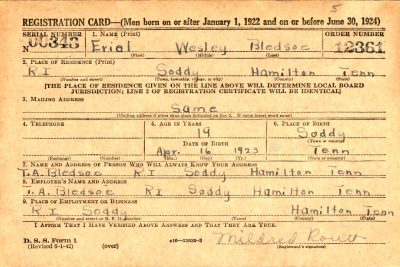 5
REGISTRATION CARD—(Men born on or after January 1, 1922 and on or before June 30, 1924)
SERIAL NUMBER 1. NAME (Print) ORDER NUMBER
Erial Wesley Bledsoe 12361
(First) (Middle) (Last)
2. PLACE OF RESIDENCE (Print)
R I Soddy Hamilton Tenn
(Number and street) (Town, township, village, or city) (County) (State)
[THE PLACE OF RESIDENCE GIVEN ON THE LINE ABOVE WILL DETERMINE LOCAL BOARD
JURISDICTION; LINE 2 OF REGISTRATION CERTIFICATE WILL BE IDENTICAL]
3. MAILING ADDRESS
Same
[Mailing address if other than place indicated on line 2. If same insert word same]
4. TELEPHONE 5. AGE IN YEARS 6. PLACE OF BIRTH
19 Soddy
DATE OF BIRTH (Town or county)
Apr. 16 1923 Tenn
(Exchange) (Number) (Mo.) (Day) (Yr.) (State or country)
7. NAME AND ADDRESS OF PERSON WHO WILL ALWAYS KNOW YOUR ADDRESS
T.A. Bledsoe R I Soddy Hamilton Tenn
8. EMPLOYER'S NAME AND ADDRESS
A. Bledsoe R I Soddy Hamilton Tenn
9. PLACE OF EMPLOYMENT OR BUSINESS
R I Soddy Hamilton Tenn
(Number and street or R. F. D. number) (Town) (County) (State)
I AFFIRM THAT I HAVE VERIFIED ABOVE ANSWERS AND THAT THEY ARE TRUE.
D. S. S. Form 1
(Revised 6-1-42) (over) Mildred
(Registrant's signature)